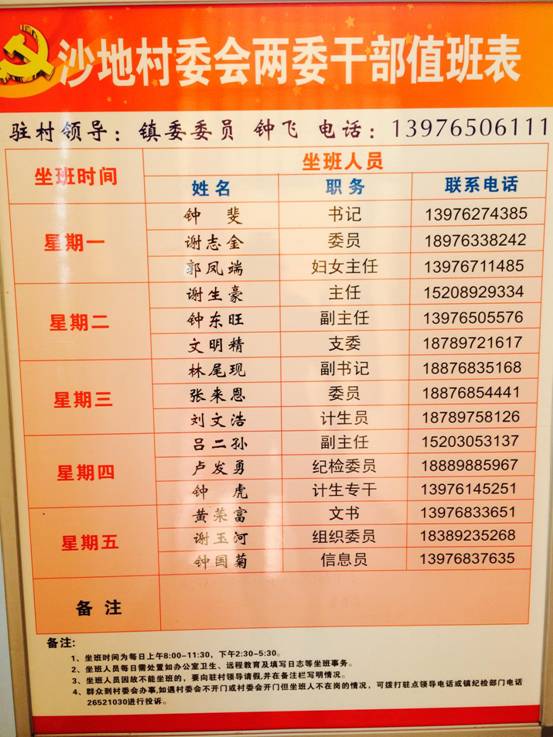 沙地村委会两委干部值班表
驻村领导：镇委委员 钟飞 电话：13976506111
坐班时间 坐班人员
姓名 职务 联系电话
星期一
钟 斐 书记 13976274385
谢志金 委员 18976338242
郭凤端 妇女主任 13976711485
星期二
谢生豪 主任 15208929334
钟东旺 副主任 13976505576
文明精 支委 18789721617
星期三
林尾现 副书记 18876835168
张来恩 委员 18876854441
刘文浩 计生员 18789758126
星期四
吕二孙 副主任 15203053137
卢发勇 纪检委员 18889885967
钟 虎 计生专干 13976145251
星期五
黄荣富 文书 13976833651
谢玉河 组织委员 18389235268
钟国菊 信息员 13976837635
备 注
备注：
1、坐班时间为每日上午8:00-11:30，下午2:30-5:30。
2、坐班人员每日需处置如办公室卫生、远程教育及填写日志等坐班事务。
3、坐班人员因故不能坐班的，要向驻村领导请假,并在备注栏写明情况。
4、群众到村委会办事,如遇村委会不开门或村委会开门但坐班人不在岗的情况，可拨打驻点领导电话或镇纪检部门电话
26521030进行投诉。